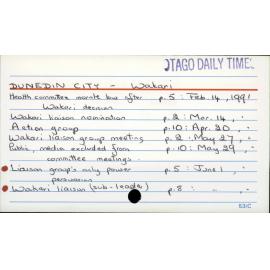 OTAGO DAILY TIMES
DUNEDIN CITY - Wakari
Health committee morale low after p.5 : Feb. 14, 1991
Wakari decision
Wakari liaison nomination p.2 : Mar. 14, "
Action group p.10 : Apr. 20, "
Wakari liaison group meeting p.2 : May 27, "
Public, media excluded from p.10 : May 29, "
committee meetings.
Liaison group's only power p.5 : June 1, "
persuasion
Wakari liaison (sub-leader) p.8 : " "
531C